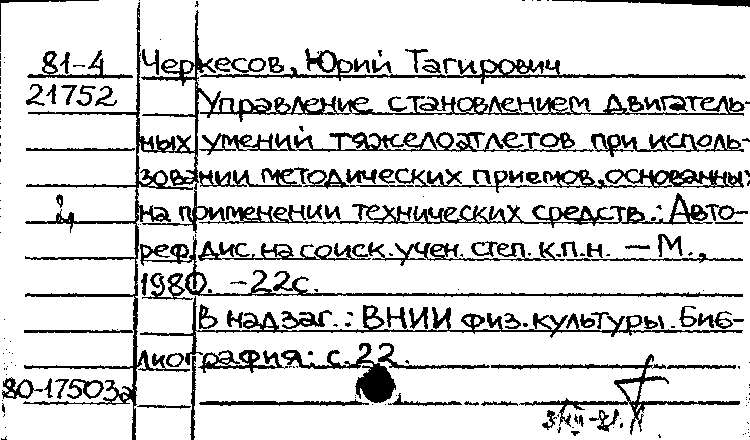 81-4 Черкесов, Юрий Тагирович
21752 Управление становлением двигатель-
ных умений тяжелоатлетов при исполь-
зовании методических приемов, основанных
на применении технических средств.: Авто-
реф. дис. на соиск. учен. степ. к.п.н. — М.,
1980. -22с.
В надзаг.: ВНИИ физ. культуры. Биб-
лиография: с. 22.
80-17503а